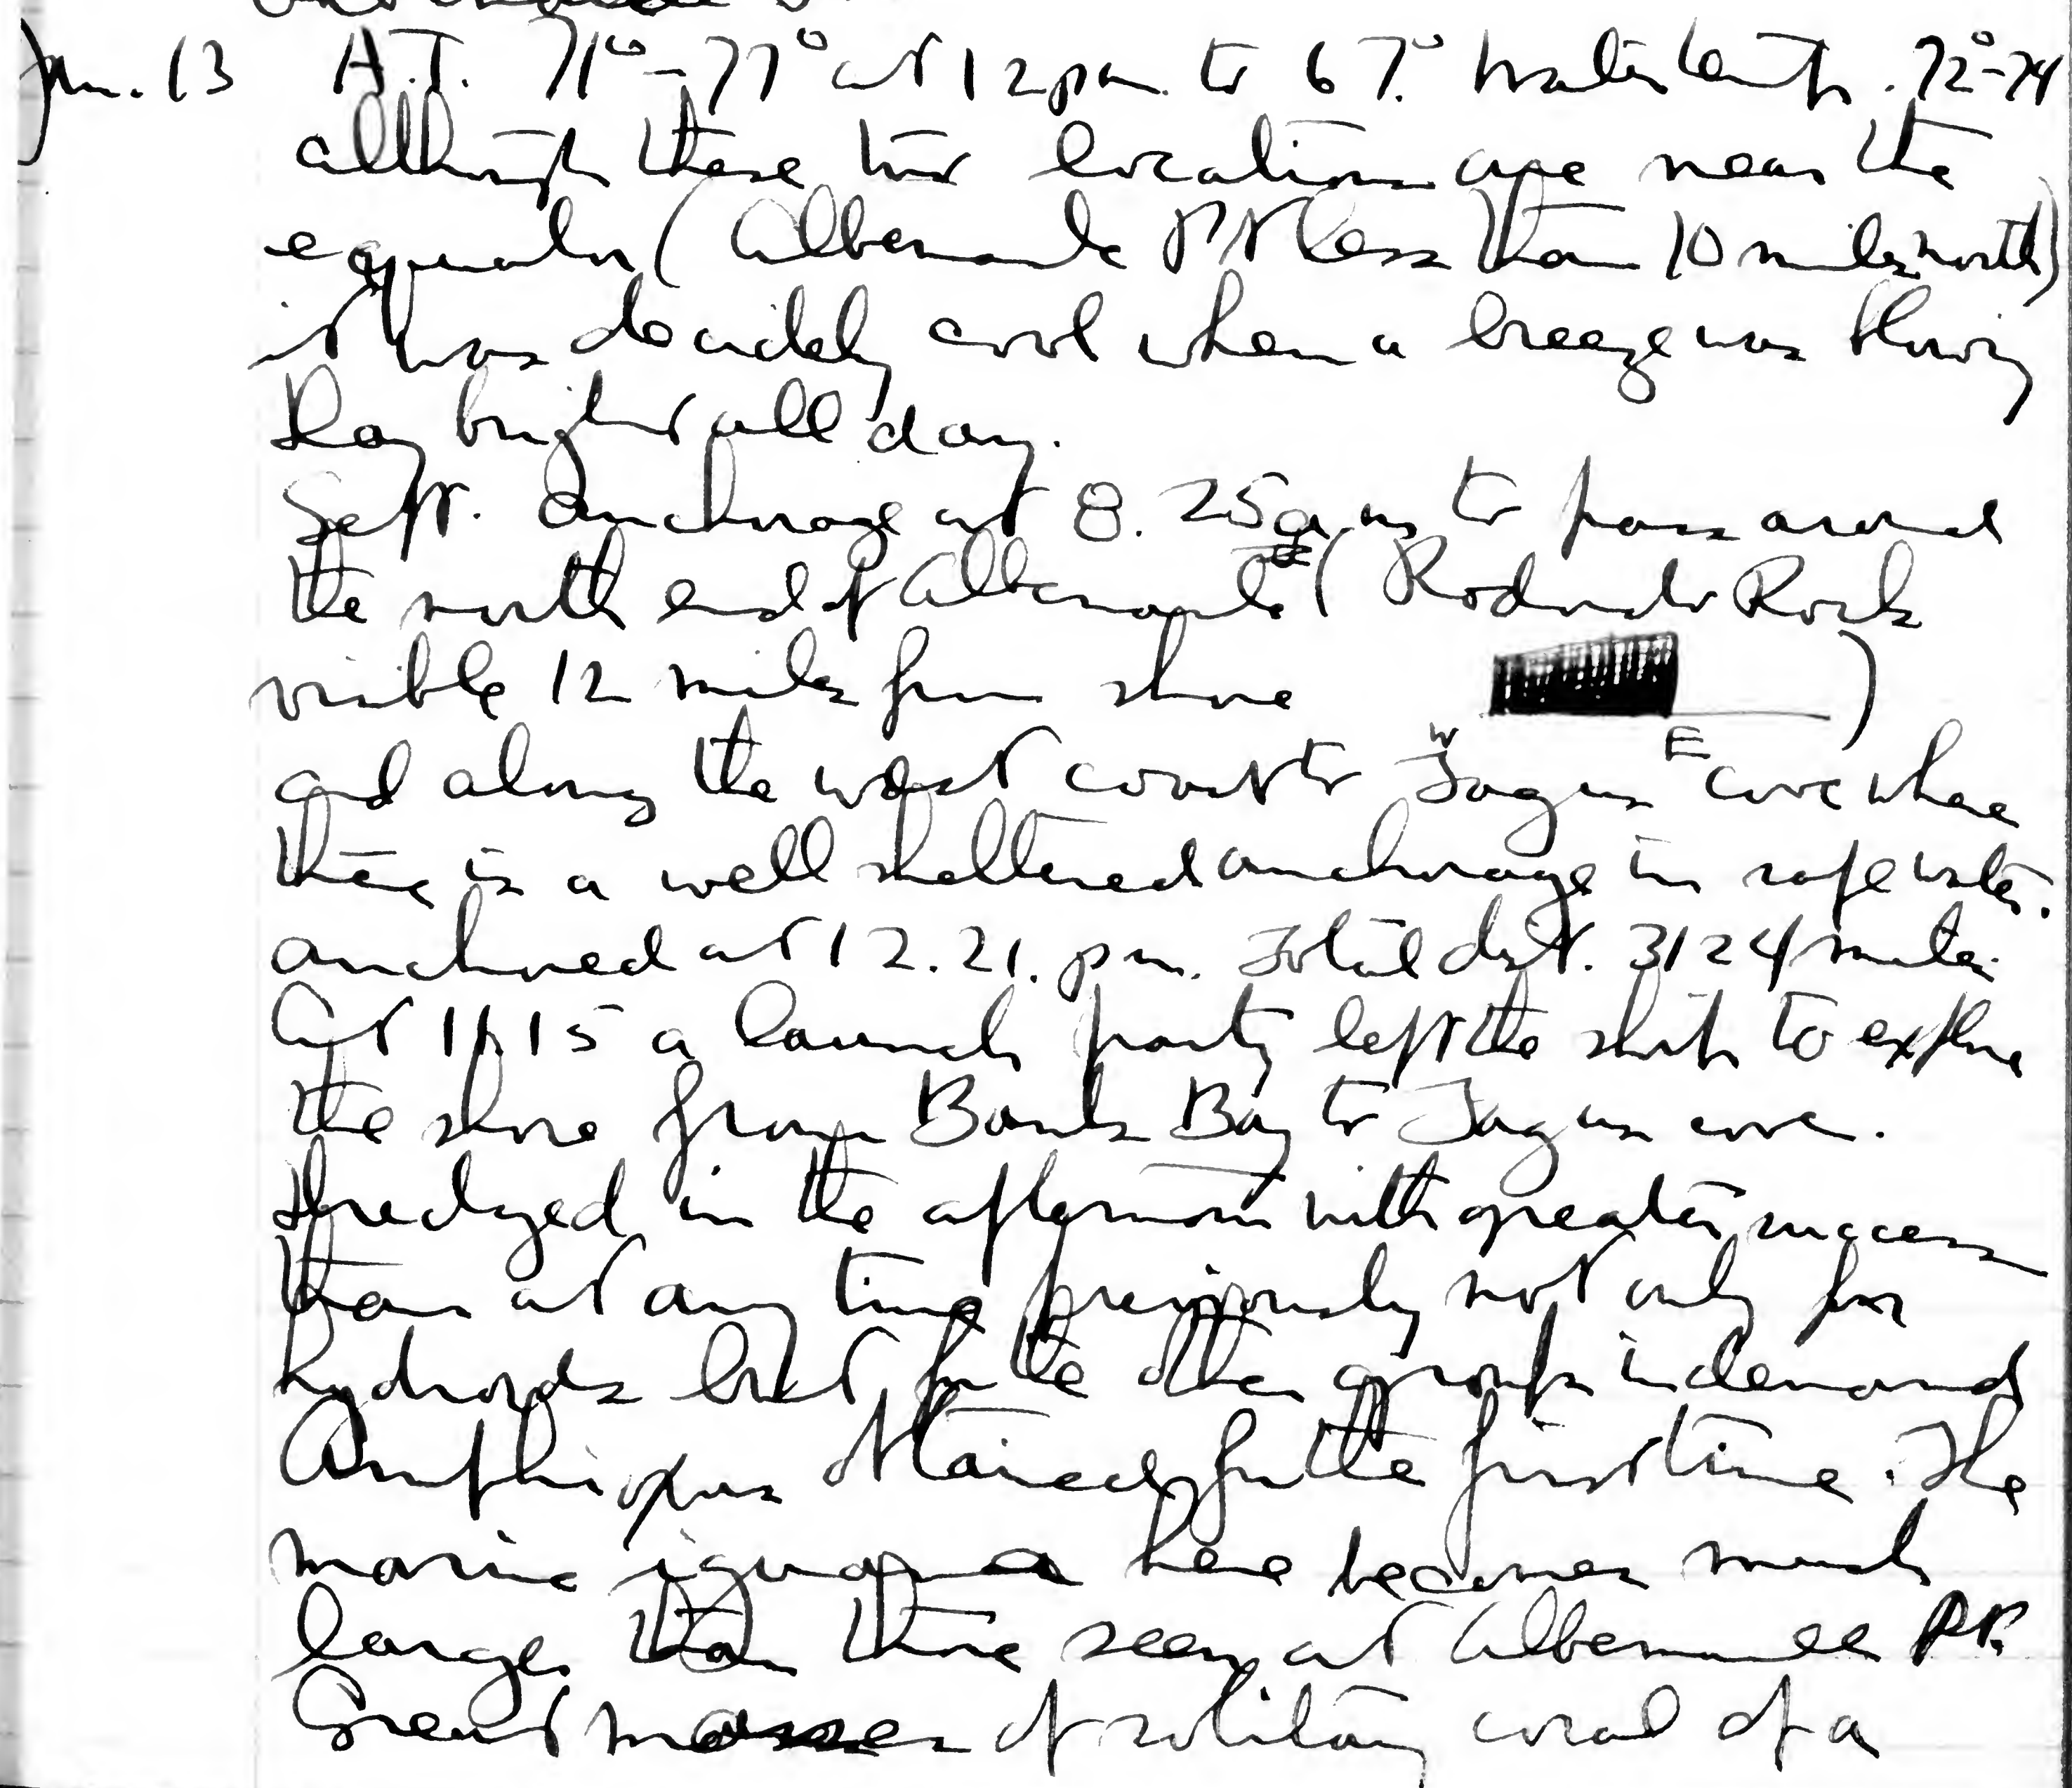 Jan. 13 A.T. 71°-77° at 12 pm. to 67.° Water temp. 72°-74
although these two locations are near the
equator (Albemarle Pt less than 10 miles north)
it was decidedly cool when a breeze was blowing
Day bright all day.
Left anchorage at 8.25 am to pass around
the north end of Albemarle (Rodondo Rock
visible 12 miles from shore )
W E
and along the west coast to Tagus cove where
there is a well sheltered anchorage in safe water.
anchored at 12.21. pm. Total dist. 3124 miles.
At 11.15 a launch party left the ship to explore
the shore from Banks Bay to Tagus cove.
Dredged in the afternoon with greater success
than at any time previously not only for
hydroids but for the other groups in demand
Amphioxus obtained for the first time. The
marine iguana here becomes much
larger than those seen at Albemarle Pt.
Great masses of solitary coral of a